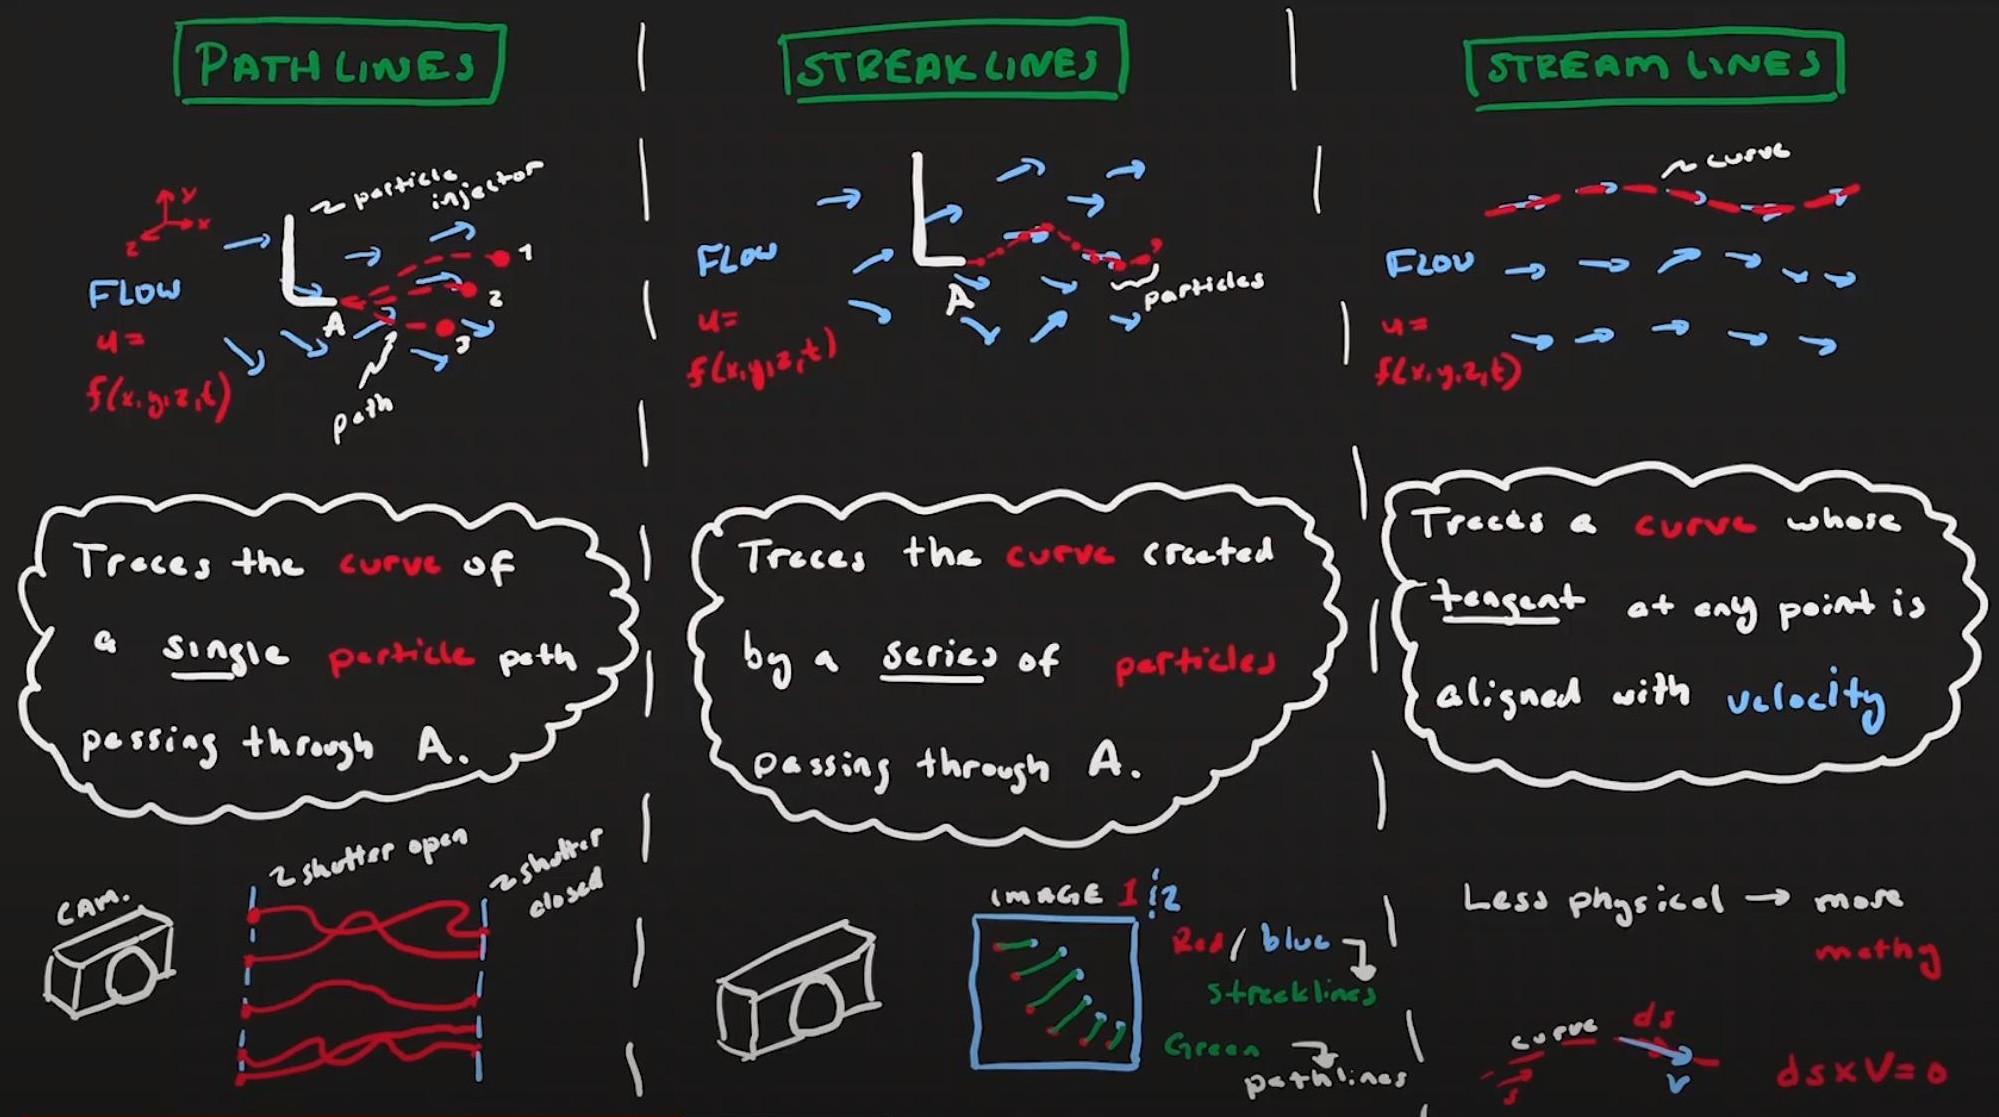 PATHLINES
y
x
z
particle
injector
FLOW
u=
f(x,y,z,t)
A
1
2
3
path
Traces the curve of
a single particle path
passing through A.
CAM.
shutter open
shutter
closed
STREAKLINES
FLOW
u=
f(x,y,z,t)
A
particles
Traces the curve created
by a series of particles
passing through A.
IMAGE 1 & 2
Red / blue
streaklines
Green
pathlines
STREAMLINES
curve
FLOW
u=
f(x,y,z,t)
Traces a curve whose
tangent at any point is
aligned with velocity
Less physical → more
mathy
curve
ds
s
V
ds x V = 0